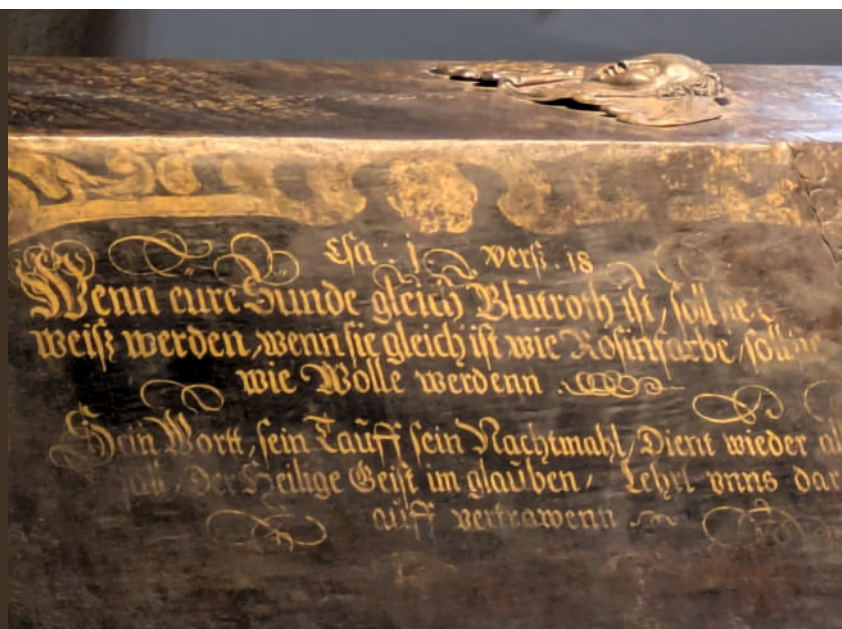 Esa : 1 verß . 18
Wenn eure Sunde gleich Blutroth ist / soll
weiß werden, wenn sie gleich ist wie Rosinfarbe / soll sie
wie Wolle werdenn
Sein Wortt, sein Tauff sein Nachtmahl / Dient wieder
Der Heilige Geist im glauben / Lehrt vnns dar
auff vertrawenn